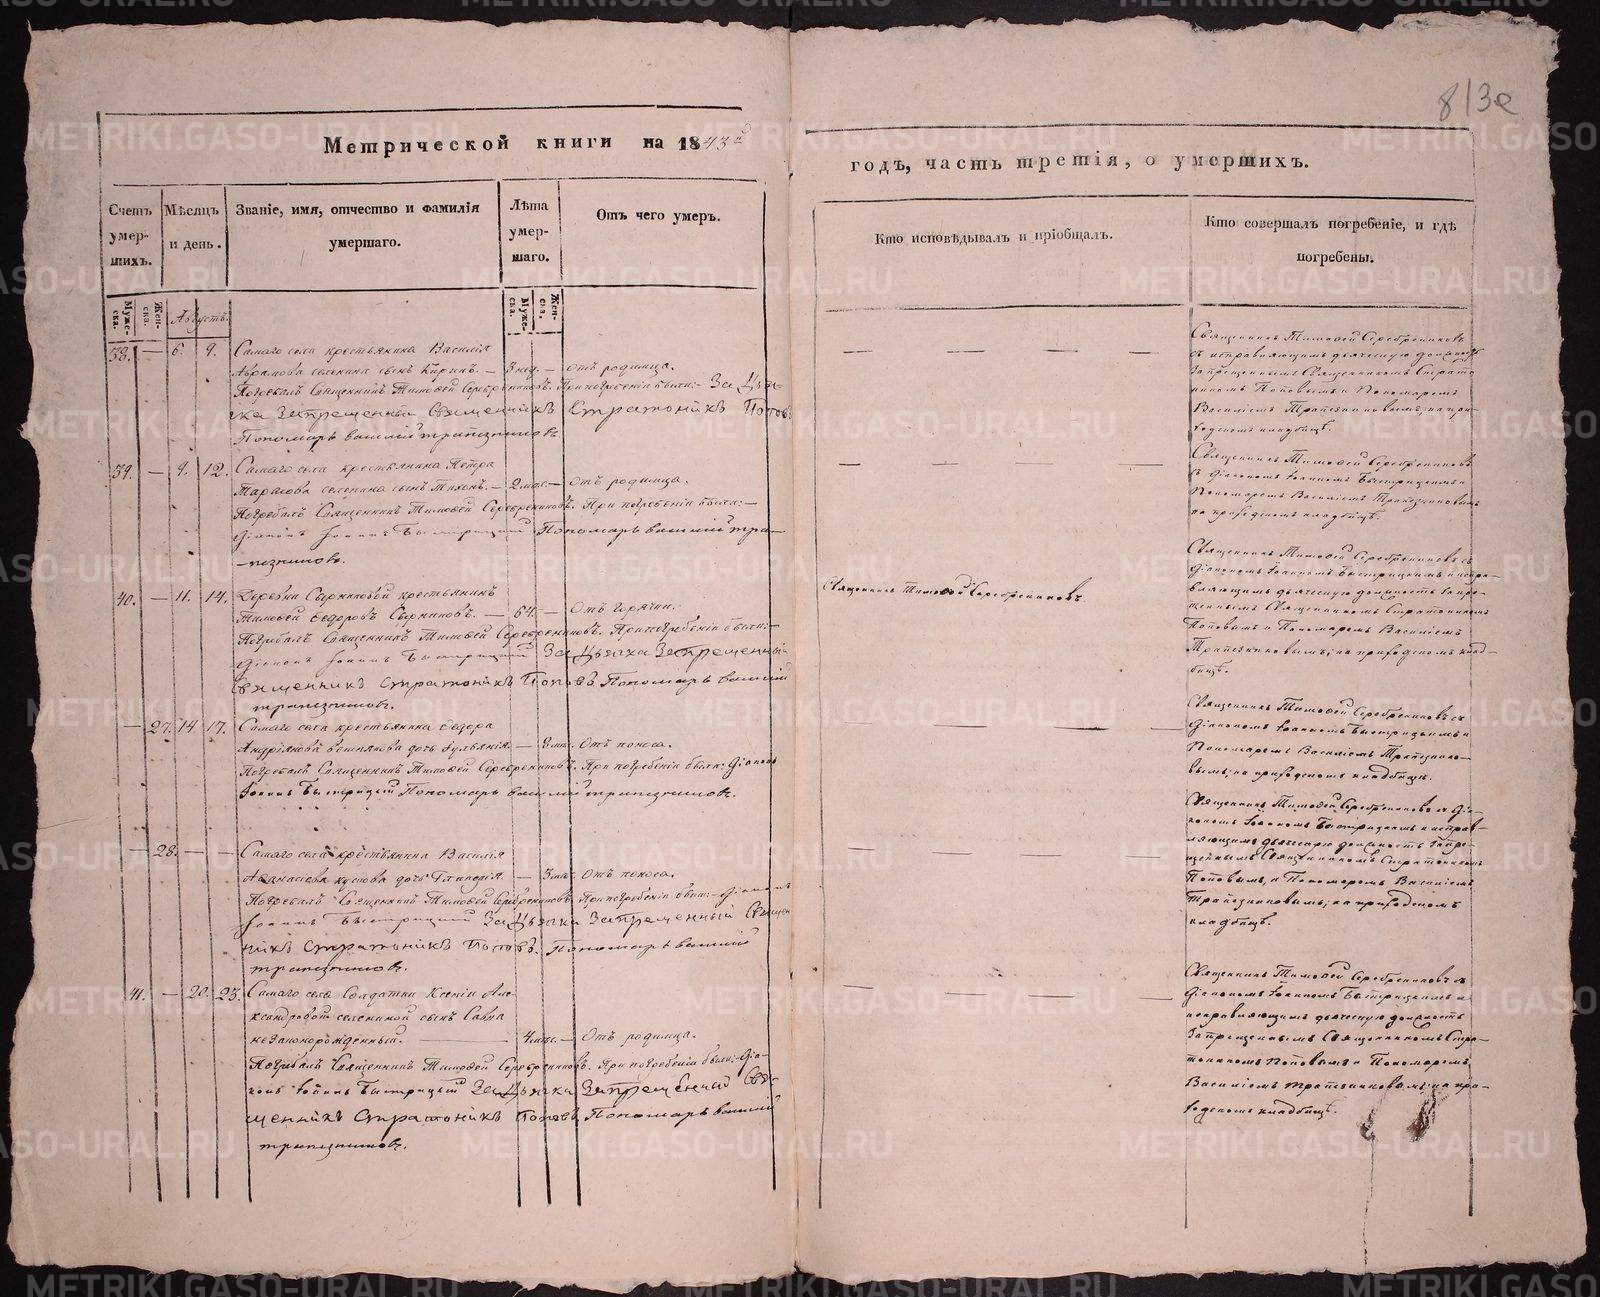 813е
Метрической книги на 1843й
годъ, часть третія, о умершихъ.
Счетъ умер-шихъ.
Мѣсяцъ и день.
Званіе, имя, отчество и фамилія умершаго.
Лѣта умер-шаго.
Отъ чего умеръ.
Кто исповѣдывалъ и пріобщалъ.
Кто совершалъ погребеніе, и гдѣ погребены.
Муже-ска.
Жен-ска.
Августъ.
Муже-ска.
Жен-ска.
38. — 6. 9. Самаго села крестьянина Василія
Абрамова селенина сынъ Кирикъ. — 3 нед. — отъ родимца.
Погребалъ Священникъ Тимоѳей Серебренниковъ. При погребеніи были: За Дья-
чка Запрещенный Священникъ Стратоникъ Поповъ
Пономарь Василій Трапезниковъ
Священникъ Тимоѳей Серебренниковъ
съ исправляющимъ дьяческую должность
Запрещеннымъ Священникомъ Страто
никомъ Поповымъ и Пономаремъ
Василіемъ Трапезниковымъ; на при-
ходскомъ кладбищѣ.
39. — 9. 12. Самаго села крестьянина Петра
Тарасова селенина сынъ Тихонъ. — 2 мѣс. — отъ родимца.
Погребалъ Священникъ Тимоѳей Серебренниковъ. При погребеніи были: —
Діаконъ Іоаннъ Быстрицкій Пономарь Василій Тра-
пезниковъ.
Священникъ Тимоѳей Серебренниковъ
съ Діакономъ Іоанномъ Быстрицкимъ и
Пономаремъ Василіемъ Трапезниковымъ
на приходскомъ кладбищѣ.
40. — 11. 14. Деревни Сырниковой крестьянинъ
Тимоѳей Ѳедоровъ Сырниковъ. — 64. — Отъ горячки.
Погребалъ Священникъ Тимоѳей Серебренниковъ. При погребеніи были: —
Діаконъ Іоаннъ Быстрицкій За Дьячка Запрещенный
Священникъ Стратоникъ Поповъ Пономарь Василій
Трапезниковъ.
Священникъ Тимоѳей Серебренниковъ
Священникъ Тимоѳей Серебренниковъ съ
Діакономъ Іоанномъ Быстрицкимъ и испра-
вляющимъ дьяческую должность Запре-
щеннымъ Священникомъ Стратоникомъ
Поповымъ и Пономаремъ Василіемъ
Трапезниковымъ; на приходскомъ клад-
бищѣ.
— 27. 14. 17. Самаго села крестьянина Ѳедора
Андріянова дочь Іульянія. — 8 мѣс. Отъ поноса.
Погребалъ Священникъ Тимоѳей Серебренниковъ. При погребеніи были: Діаконъ
Іоаннъ Быстрицкій Пономарь Василій Трапезниковъ.
Священникъ Тимоѳей Серебренниковъ съ
Діакономъ Іоанномъ Быстрицкимъ и
Пономаремъ Василіемъ Трапезнико-
вымъ; на приходскомъ кладбищѣ.
— 28. — — Самаго села крестьянина Василія
Аѳанасьева дочь Гликерія. — 3 мѣс. Отъ поноса.
Погребалъ Священникъ Тимоѳей Серебренниковъ. При погребеніи были: — Діаконъ
Іоаннъ Быстрицкій За Дьячка Запрещенный Священ
никъ Стратоникъ Поповъ. Пономарь Василій
Трапезниковъ.
Священникъ Тимоѳей Серебренниковъ съ Діа-
кономъ Іоанномъ Быстрицкимъ и исправ-
ляющимъ дьяческую должность Запре-
щеннымъ Священникомъ Стратоникомъ
Поповымъ, и Пономаремъ Василіемъ
Трапезниковымъ; на приходскомъ
кладбищѣ.
41. — 20. 23. Самаго села Солдатки Ксеніи Але-
ксандровой селениной сынъ Савва
незаконорожденный. — 4 мѣс. — Отъ родимца.
Погребалъ Священникъ Тимоѳей Серебренниковъ. При погребеніи были: Діа-
конъ Іоаннъ Быстрицкій За Дьячка Запрещенный Свя-
щенникъ Стратоникъ Поповъ Пономарь Василій
Трапезниковъ.
Священникъ Тимоѳей Серебренниковъ съ
Діакономъ Іоанномъ Быстрицкимъ и
исправляющимъ дьяческую должность
Запрещеннымъ Священникомъ Стра-
тоникомъ Поповымъ и Пономаремъ
Василіемъ Трапезниковымъ; на при-
ходскомъ кладбищѣ.
METRIKI.GASO-URAL.RU